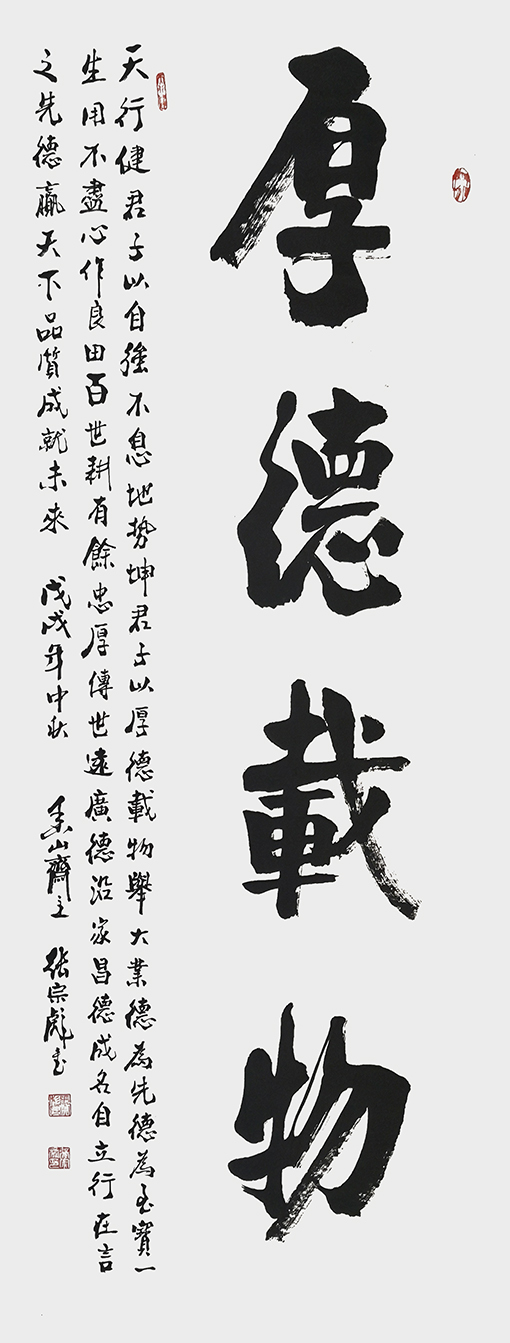 厚德載物
天行健君子以自強不息地勢坤君子以厚德載物舉大業德為先德為至寶一
生用不盡心作良田百世耕有餘忠厚傳世遠廣德沿家昌德成名自立行在言
之先德贏天下品質成就未來 戊戌年中秋 山齋主 張宗彪書